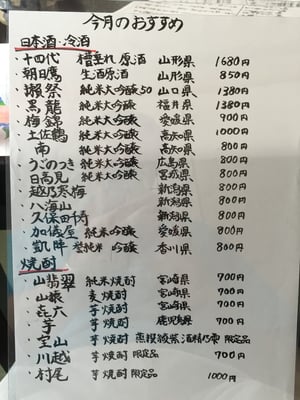 今月のおすすめ
日本酒・冷酒
・十四代 槽垂れ原酒 山形県 1680円
・朝日鷹 生酒原酒 山形県 850円
・獺祭 純米大吟醸50 山口県 1380円
・黒龍 純米大吟醸 福井県 1380円
・梅錦 純米大吟醸 愛媛県 900円
・土佐鶴 純米大吟醸 高知県 1000円
・南 純米大吟醸 高知県 800円
・うごのつき 純米大吟醸 広島県 800円
・日高見 純米大吟醸 宮城県 800円
・越乃寒梅 新潟県 800円
・八海山 新潟県 800円
・久保田千寿 新潟県 800円
・加儀屋 純米吟醸 愛媛県 800円
・凱陣 純米吟醸 香川県 800円
焼酎
・山翡翠 純米焼酎 宮崎県 700円
・山猿 麦焼酎 宮崎県 700円
・㐂六 芋焼酎 宮崎県 700円
・芋 芋焼酎 鹿児島県 700円
・宝山 芋焼酎 蒸撰綾紫酒精乃雫 限定品
・川越 芋焼酎 限定品 700円
・村尾 芋焼酎 限定品 1000円